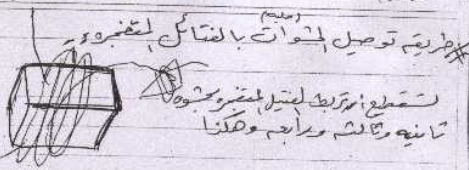 طريقه توصيل الحشوات بالفتائل المتفجره
تستطيع ان تربط الفتيل المتفجر بحشوه
ثانيه وثالثه ورابعه وهكذا